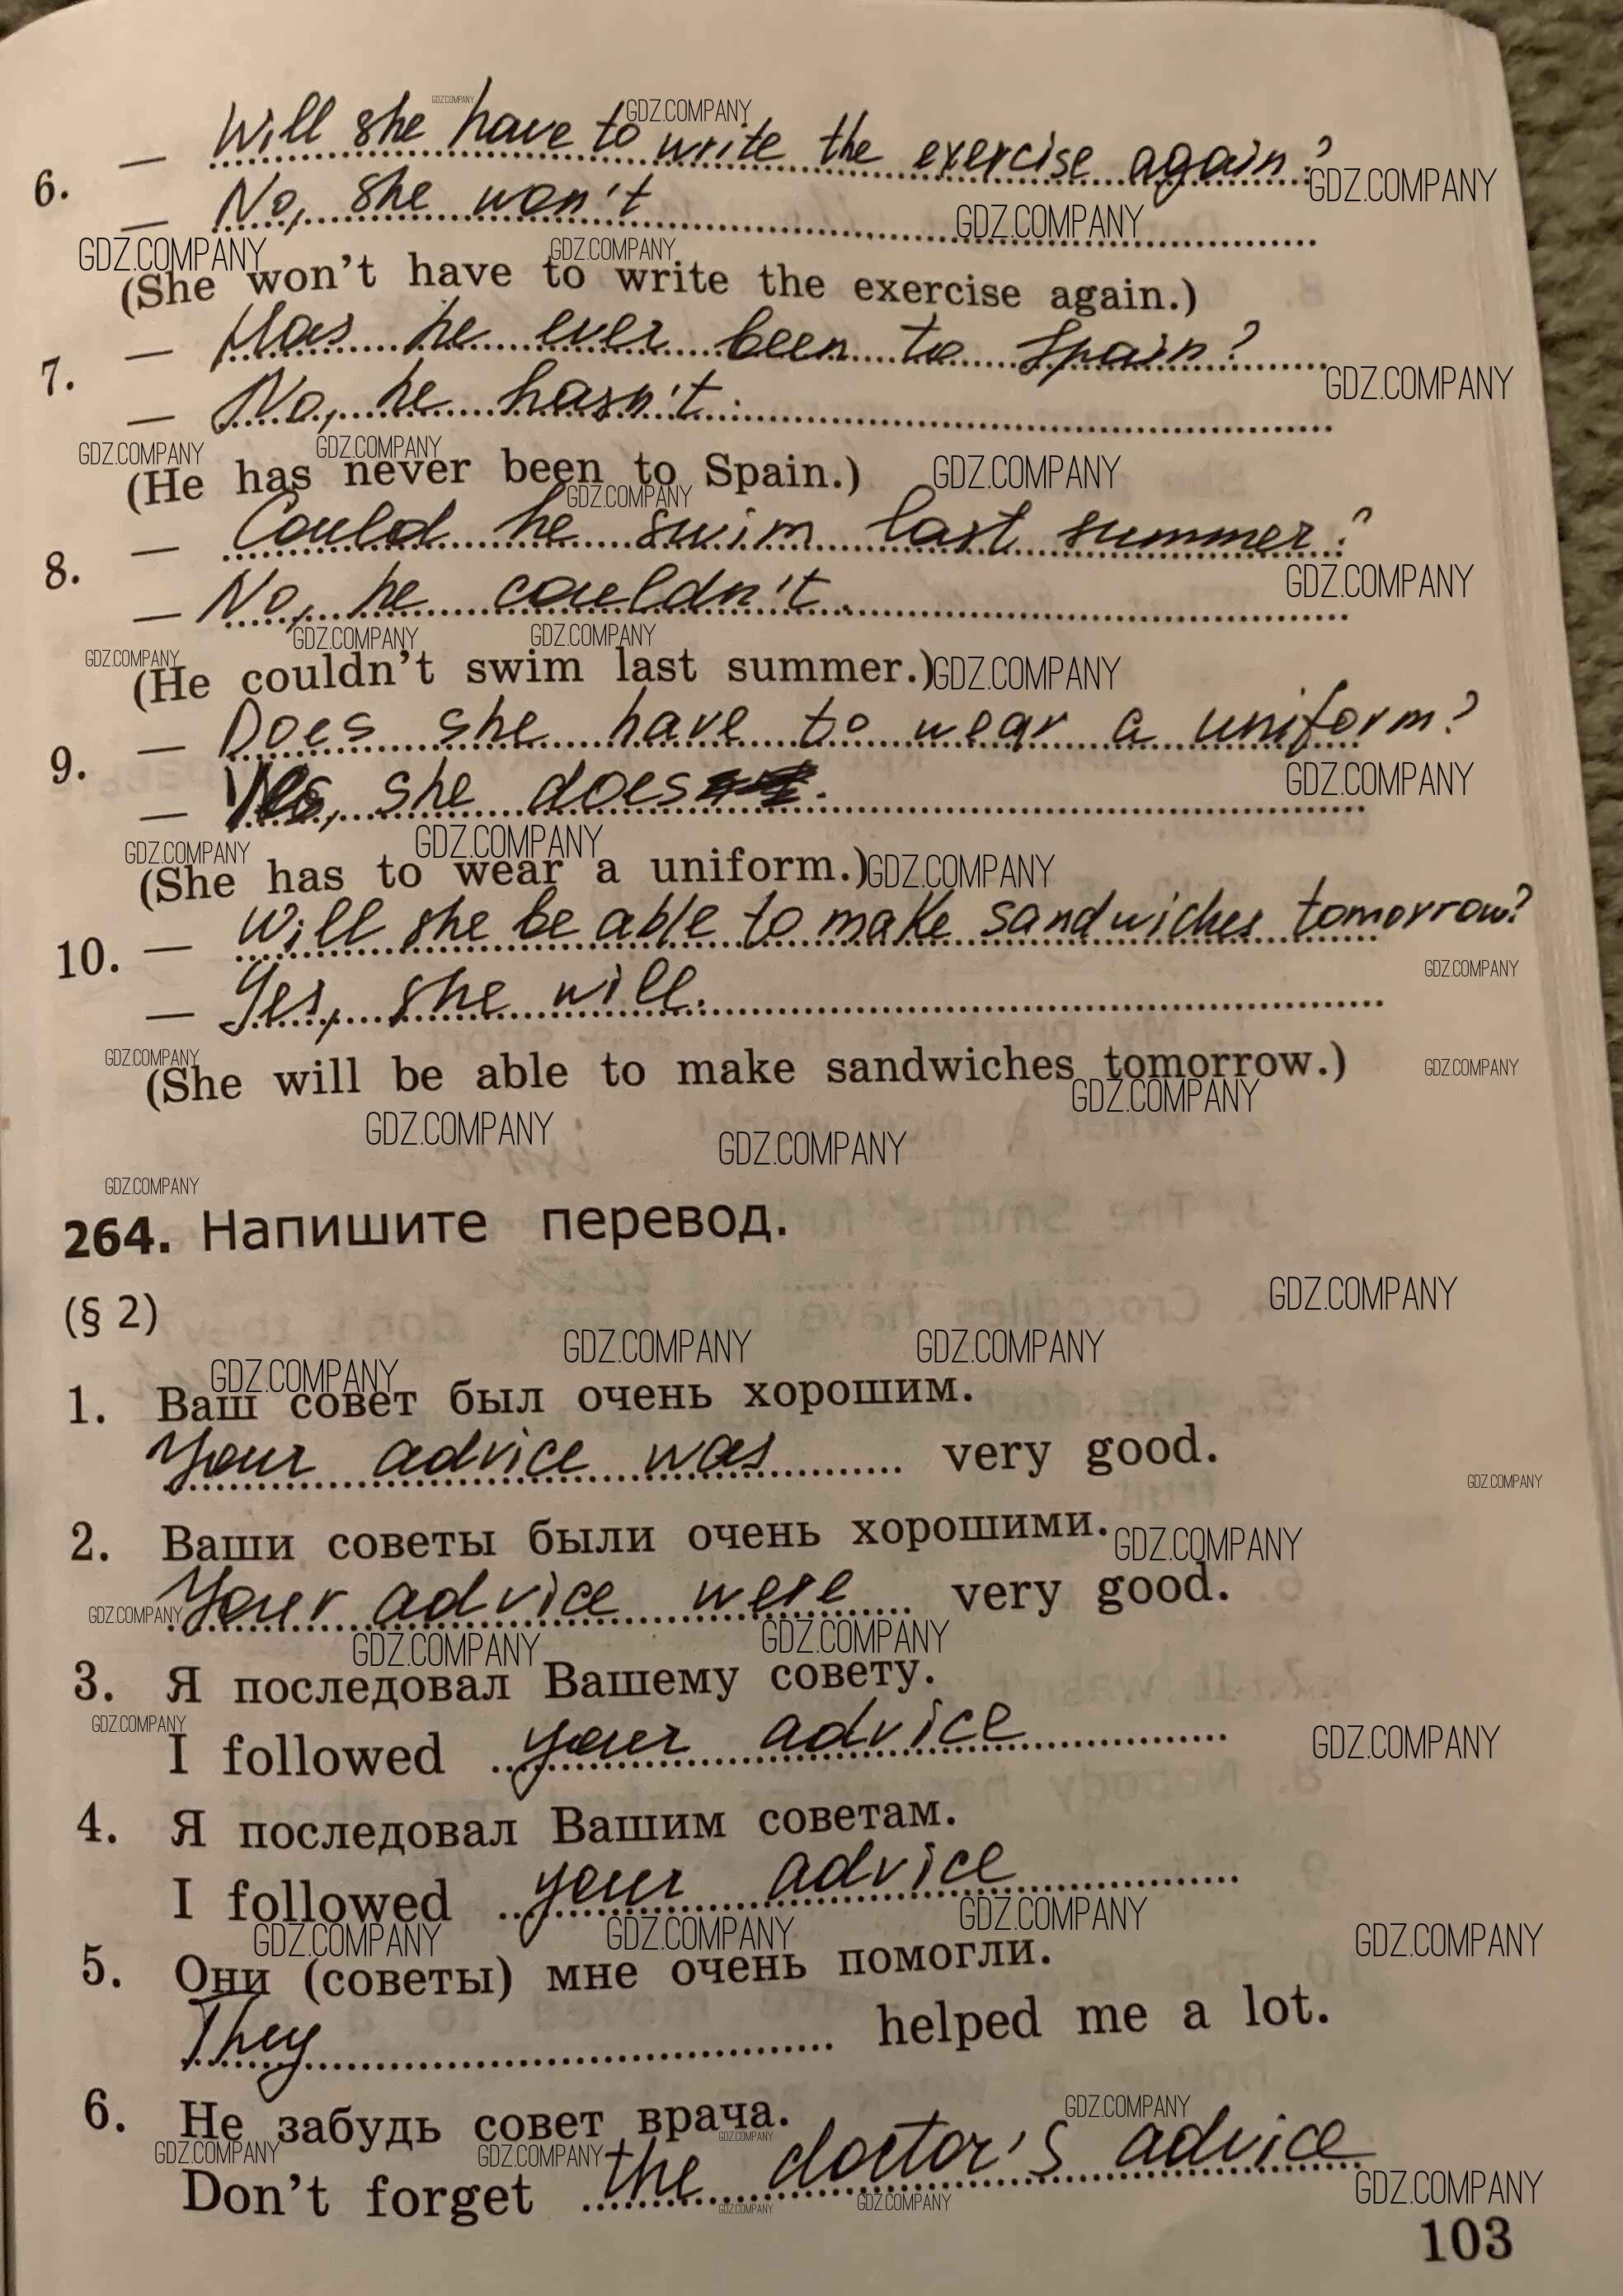 — Will she have to write the exercise again?
6.
— No, she won't
(She won't have to write the exercise again.)
— Has he ever been to Spain?
7.
— No, he hasn't.
(He has never been to Spain.)
— Could he swim last summer?
8.
— No, he couldn't.
(He couldn't swim last summer.)
— Does she have to wear a uniform?
9.
— Yes, she does.
(She has to wear a uniform.)
10. — Will she be able to make sandwiches tomorrow?
— Yes, she will.
(She will be able to make sandwiches tomorrow.)
264. Напишите перевод.
(§ 2)
1. Ваш совет был очень хорошим.
Your advice was very good.
2. Ваши советы были очень хорошими.
Your advice were very good.
3. Я последовал Вашему совету.
I followed your advice
4. Я последовал Вашим советам.
I followed your advice
5. Они (советы) мне очень помогли.
They helped me a lot.
6. Не забудь совет врача.
Don't forget the doctor's advice
103
GDZ.COMPANY